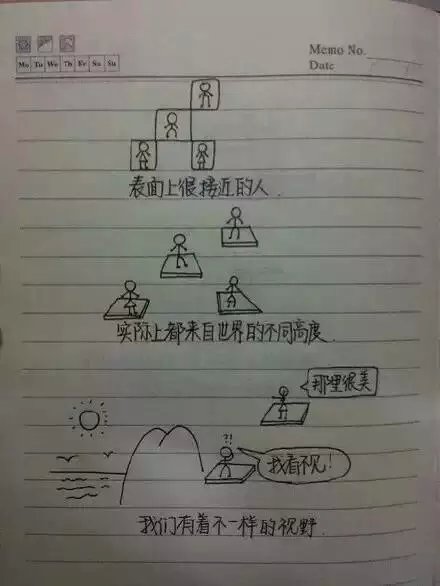 Memo No.
Mo Tu We Th Fr Sa Su
Date
表面上很接近的人.
实际上都来自世界的不同高度.
那里很美
?!
我看不见!
我们有着不一样的视野.